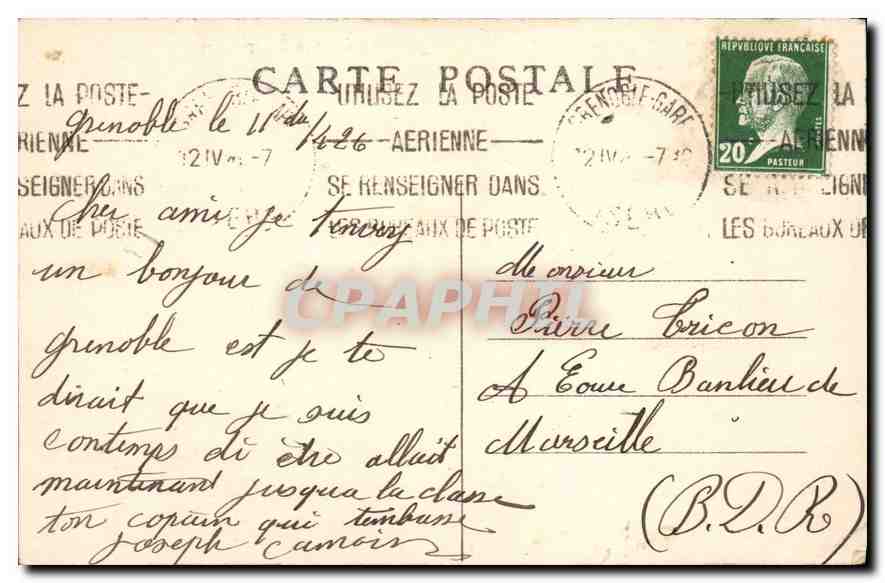 CARTE POSTALE
REPVBLIQUE FRANÇAISE
20c
PASTEUR
Z LA POSTE-
RIENNE
SEIGNER DANS
AUX DE POSTE
UTILISEZ LA POSTE
AERIENNE
SE RENSEIGNER DANS
LES BUREAUX DE POSTE
GRENOBLE-GARE
12 IV
-7
ISERE
UTILISEZ LA
AERIEN
SE RENSEIGN
LES BUREAUX DE
grenoble le 11 du
/426
Cher ami je t'envoy
un bonjour de
grenoble est je te
dirait que je suis
contemps di être allait
maintenant jusqua la classe
ton copain qui tembasse
Joseph Camoin
Monsieur
Pierre Tricon
A Eoure Banlieu de
Marseille
(B.D.R)
CPAPHIL